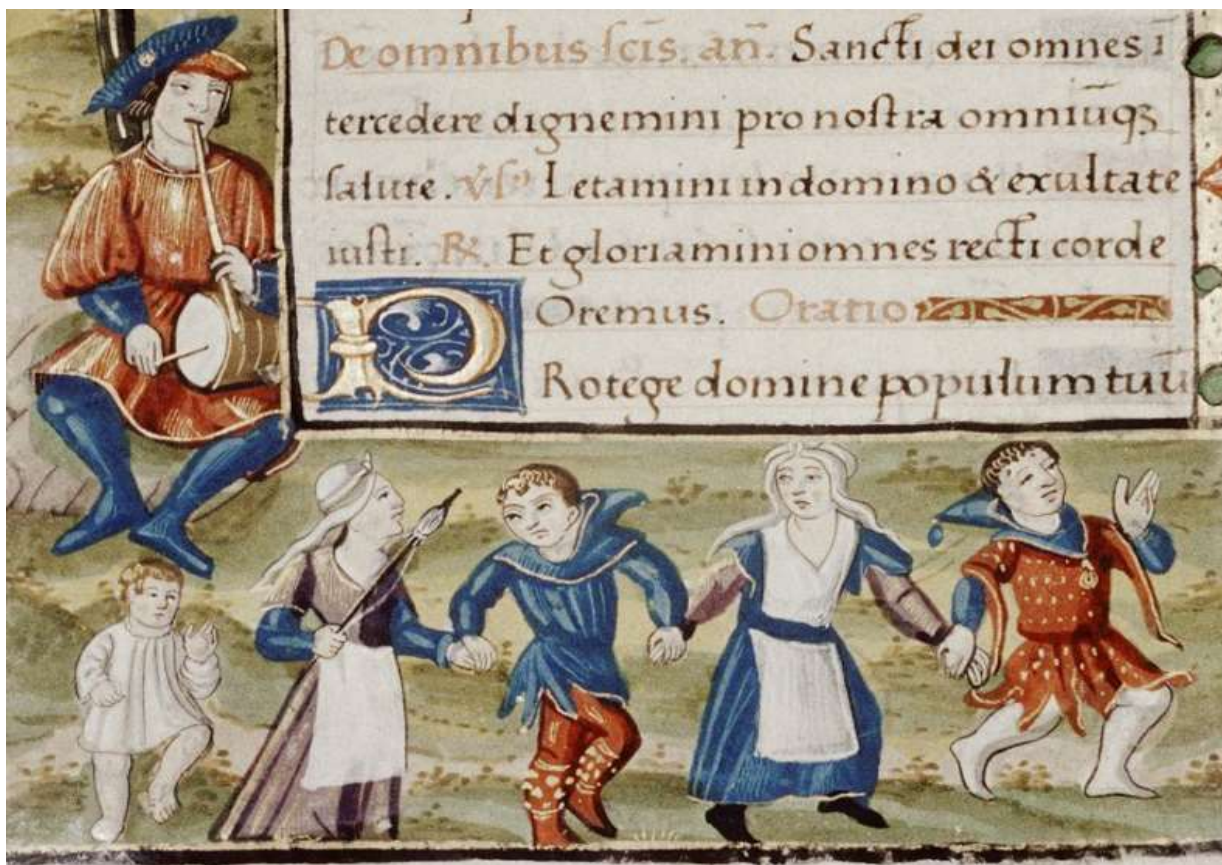 De omnibus scĩs. añ. Sancti dei omnes ĩ
tercedere dignemini pro nostra omniũqꝫ
salute. Vsͦ Letamini in domino & exultate
iusti. R̃. Et gloriamini omnes recti corde
Oremus. Oratio
PRotege domine populum tuũ